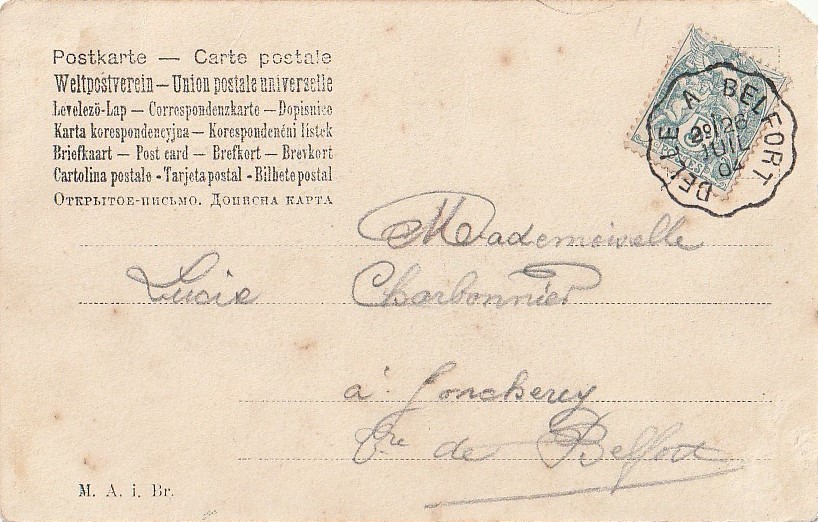 Postkarte — Carte postale
Weltpostverein — Union postale universelle
Levelező-Lap — Correspondenzkarte — Dopisnice
Karta korespondencyjna — Korespondenční lístek
Briefkaart — Post card — Brefkort — Brevkort
Cartolina postale - Tarjeta postal - Bilhete postal
Открытое-письмо. Дописна карта
DELLE A BELFORT
26
JUIL
04
Mademoiselle
Lucie Charbonnier
à Joncherey
de Belfort
M. A. i. Br.